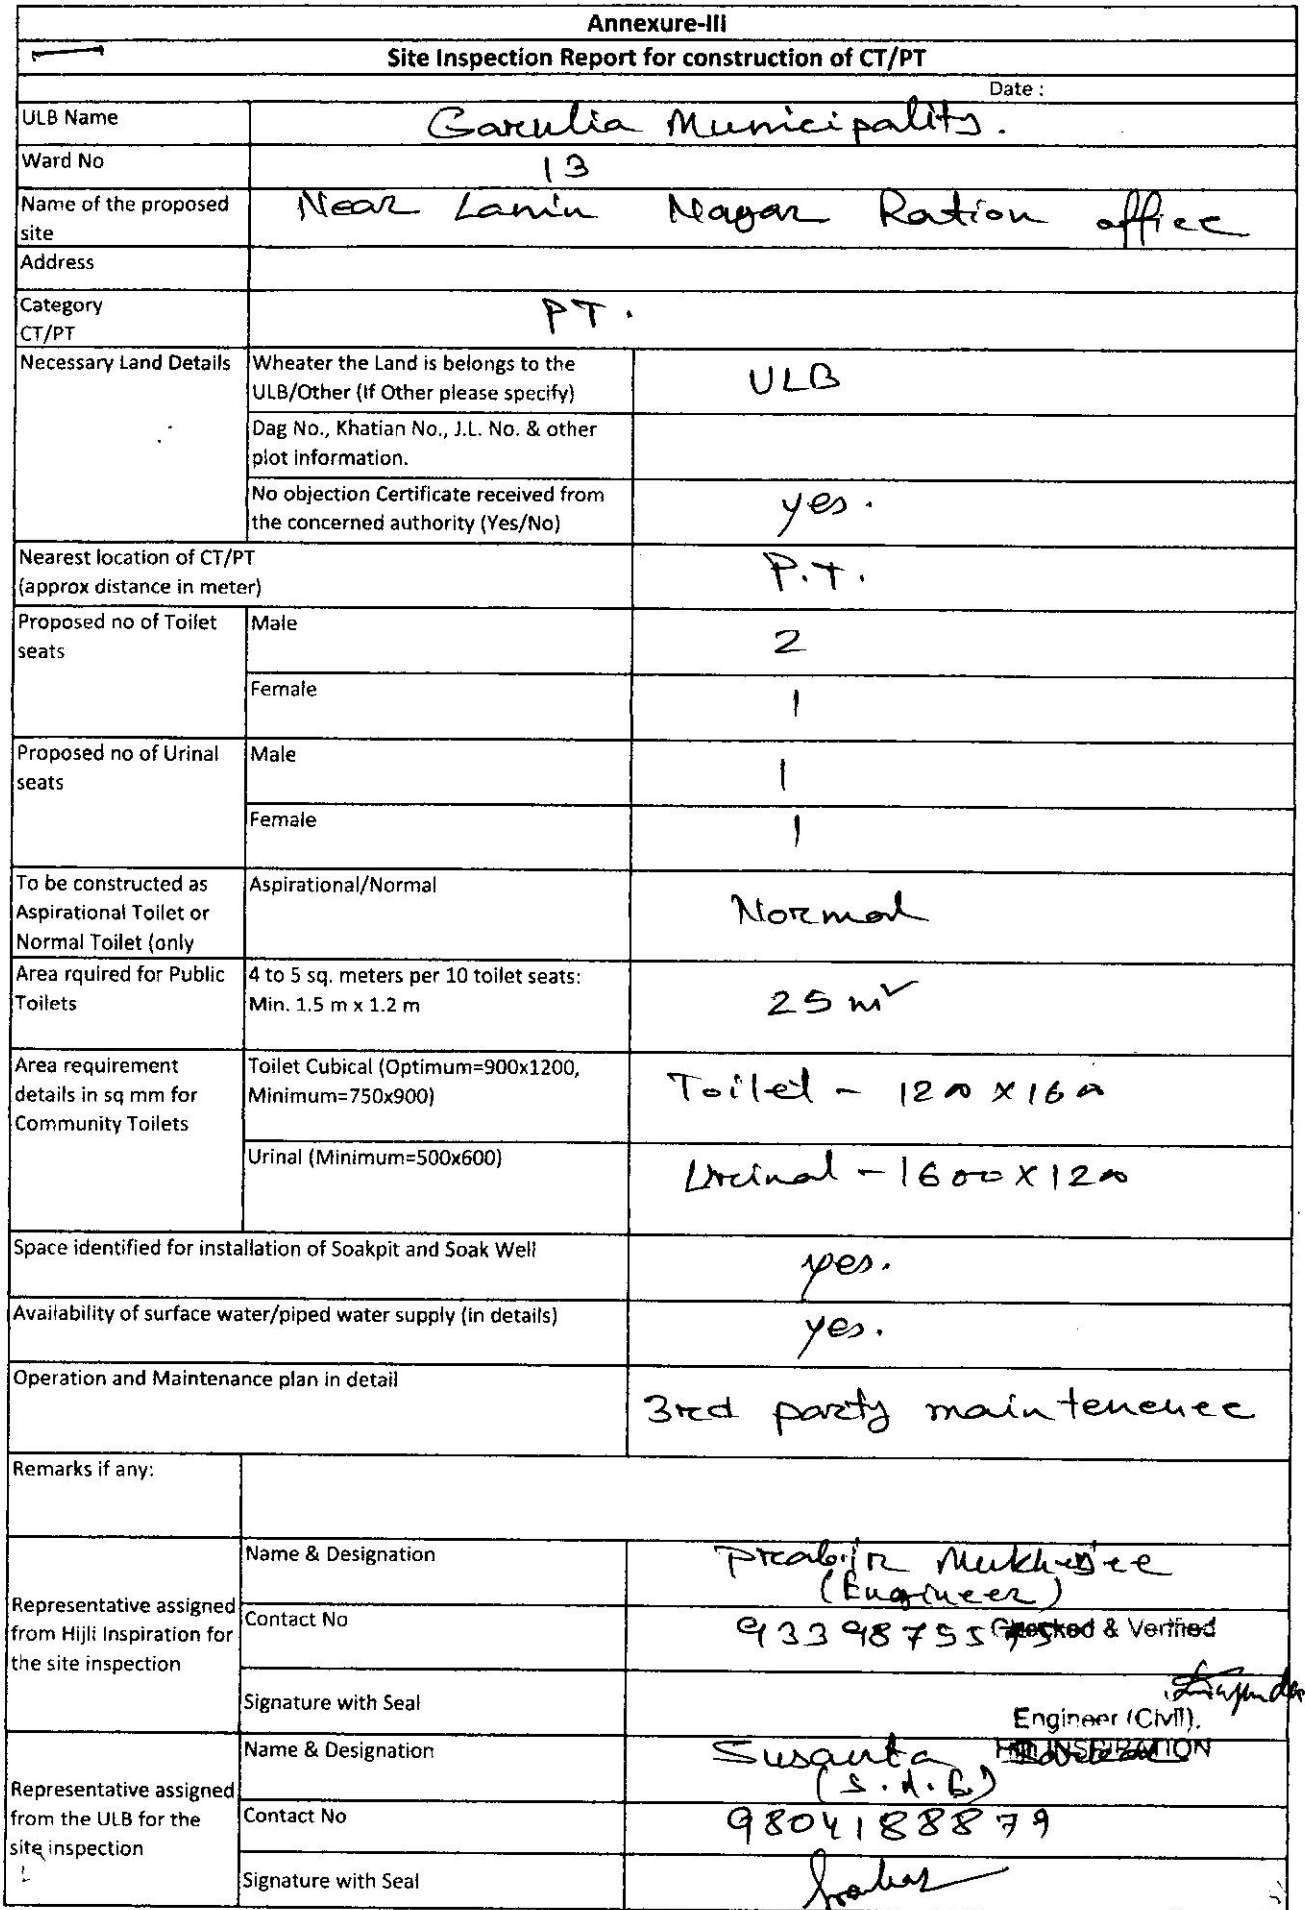 Annexure-III
Site Inspection Report for construction of CT/PT
Date :
ULB Name Garulia Municipality.
Ward No 13
Name of the proposed site Near Lanin Nagar Ration office
Address
Category
CT/PT PT.
Necessary Land Details
Wheater the Land is belongs to the
ULB/Other (If Other please specify) ULB
Dag No., Khatian No., J.L. No. & other
plot information.
No objection Certificate received from
the concerned authority (Yes/No) yes.
Nearest location of CT/PT
(approx distance in meter) P.T.
Proposed no of Toilet
seats
Male 2
Female 1
Proposed no of Urinal
seats
Male 1
Female 1
To be constructed as
Aspirational Toilet or
Normal Toilet (only
Aspirational/Normal Normal
Area rquired for Public
Toilets
4 to 5 sq. meters per 10 toilet seats:
Min. 1.5 m x 1.2 m 25 m²
Area requirement
details in sq mm for
Community Toilets
Toilet Cubical (Optimum=900x1200,
Minimum=750x900) Toilet - 1200 X 1600
Urinal (Minimum=500x600) Urinal - 1600 X 1200
Space identified for installation of Soakpit and Soak Well yes.
Availability of surface water/piped water supply (in details) yes.
Operation and Maintenance plan in detail 3rd party maintenence
Remarks if any:
Representative assigned
from Hijli Inspiration for
the site inspection
Name & Designation Prabir Mukherjee
(Engineer)
Contact No 93398755
Checked & Verified
Signature with Seal
Engineer (Civil).
HIJLI INSPIRATION
Representative assigned
from the ULB for the
site inspection
Name & Designation Susanta
(S.A.E)
Contact No 9804188879
Signature with Seal